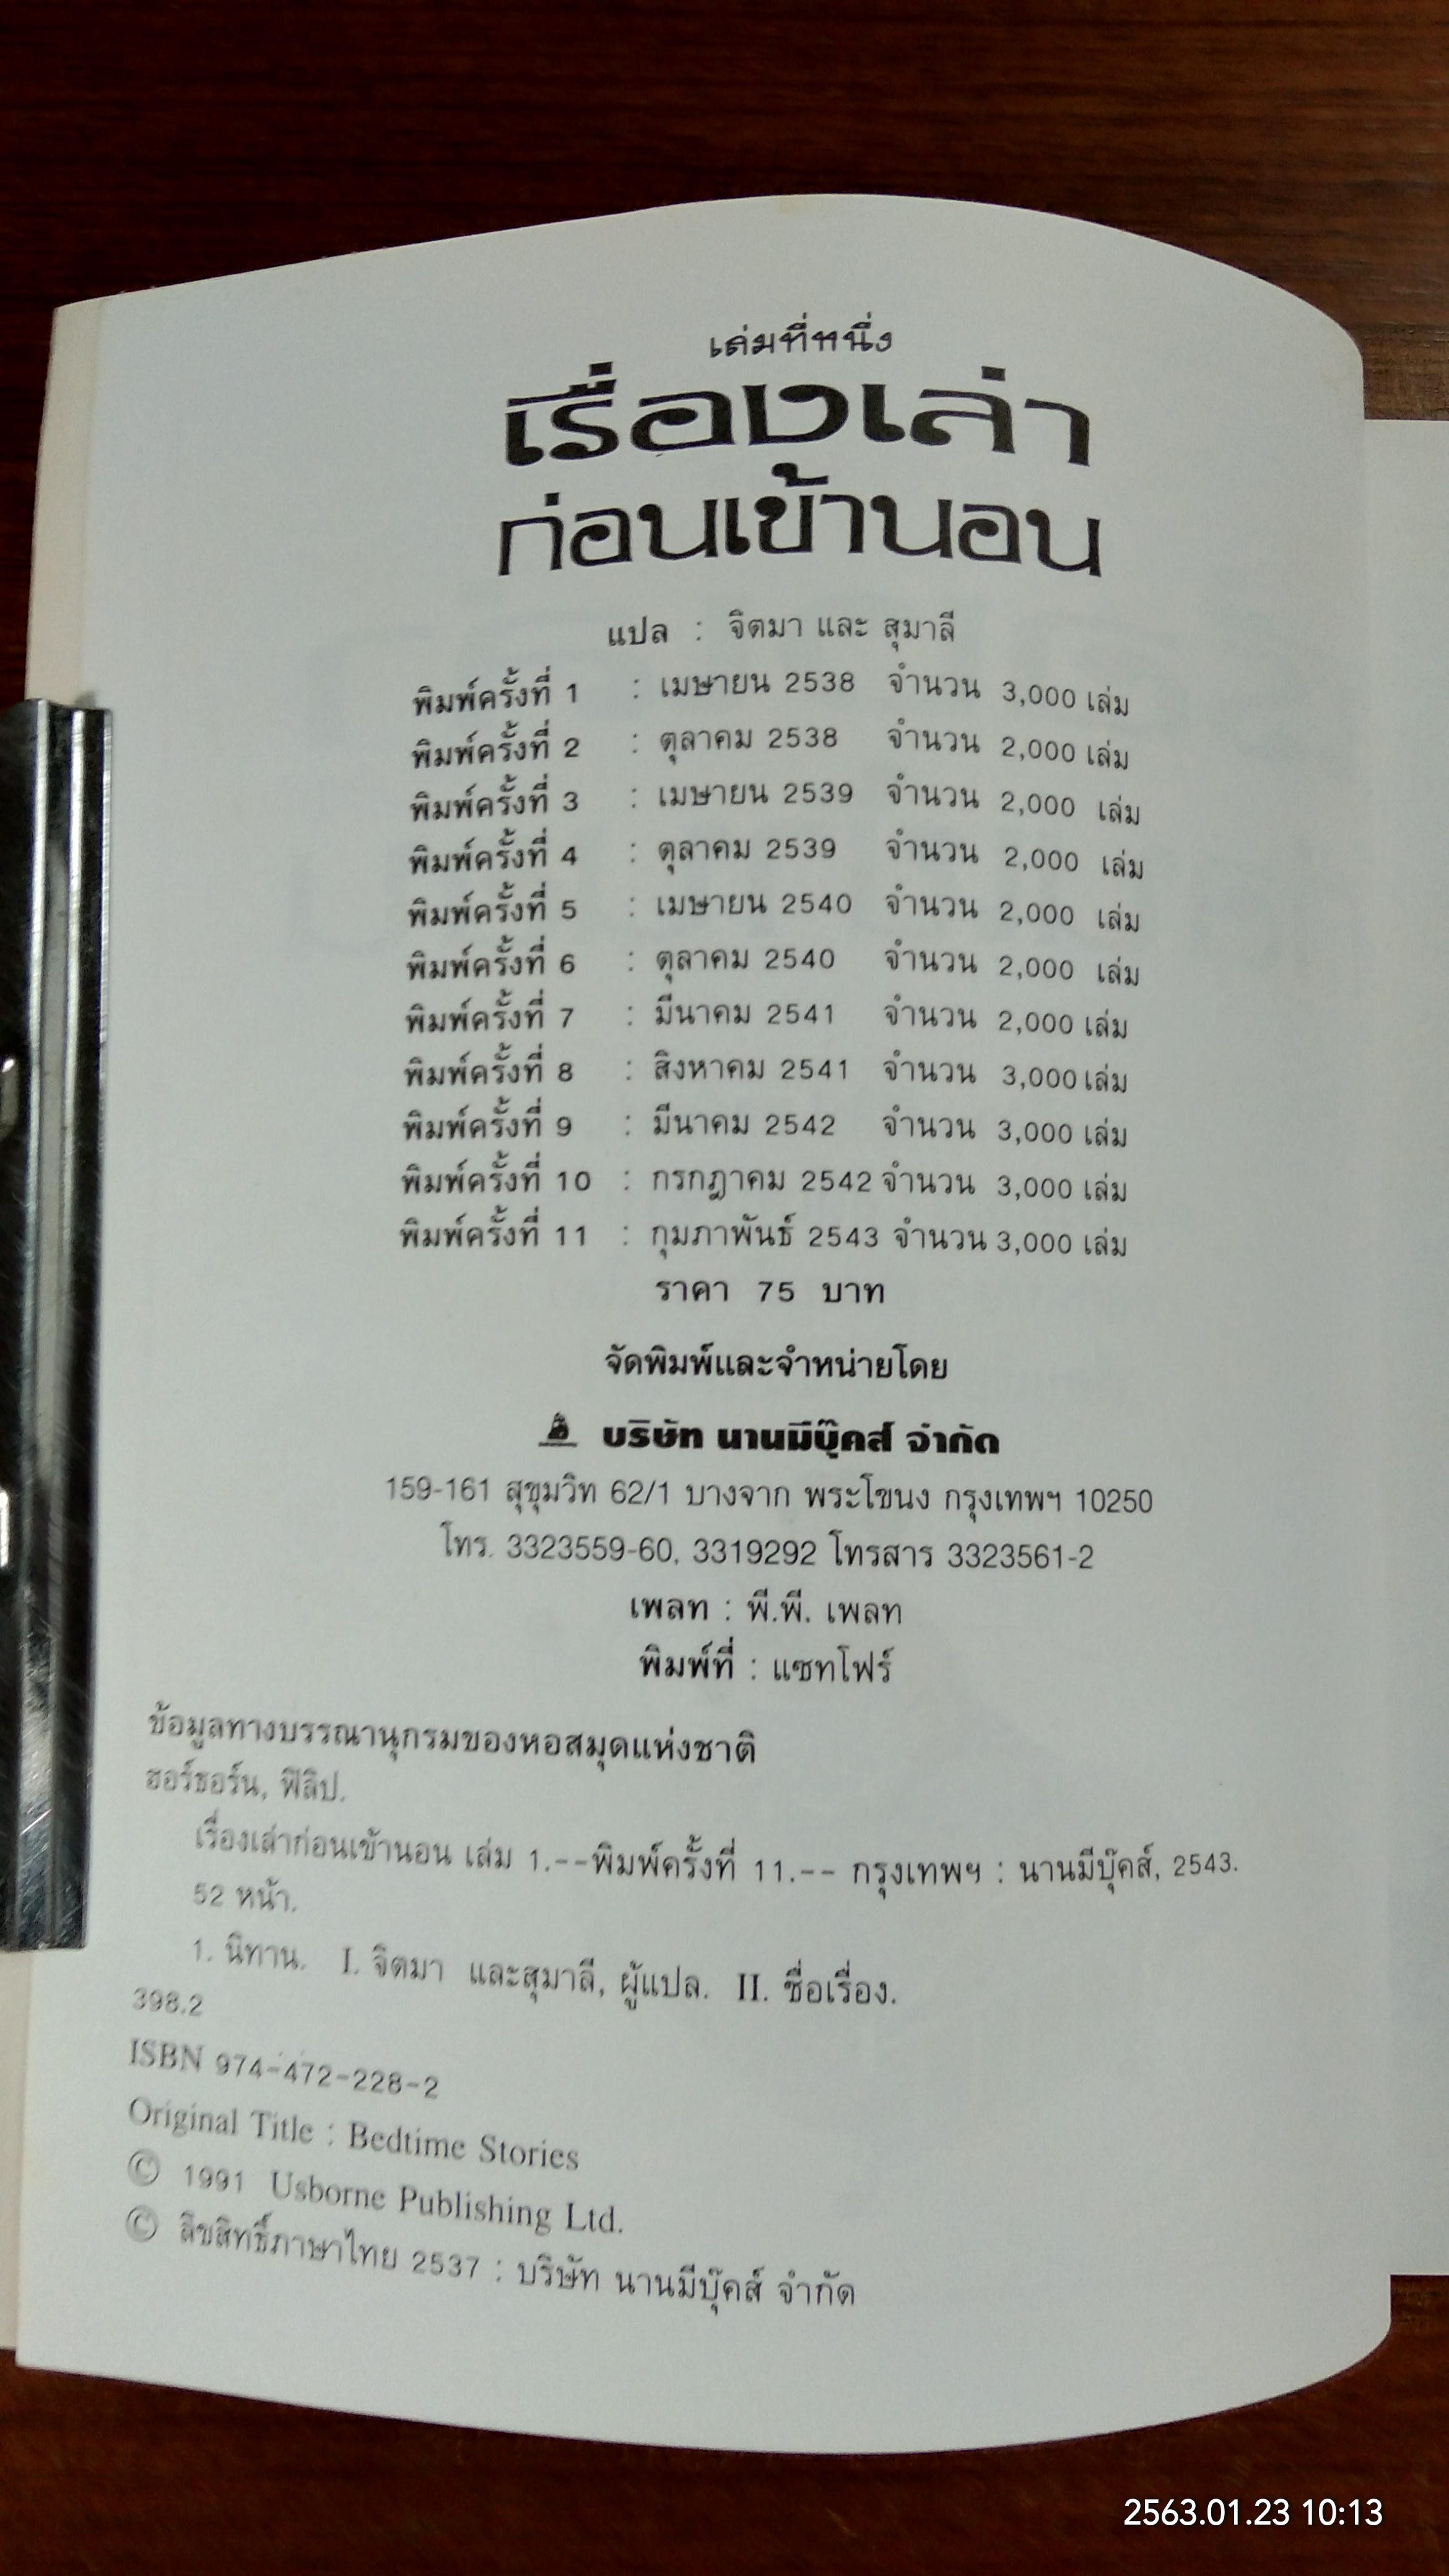 เล่มที่หนึ่ง
เรื่องเล่า
ก่อนเข้านอน
แปล : จิตมา และ สุมาลี
พิมพ์ครั้งที่ 1 : เมษายน 2538 จำนวน 3,000 เล่ม
พิมพ์ครั้งที่ 2 : ตุลาคม 2538 จำนวน 2,000 เล่ม
พิมพ์ครั้งที่ 3 : เมษายน 2539 จำนวน 2,000 เล่ม
พิมพ์ครั้งที่ 4 : ตุลาคม 2539 จำนวน 2,000 เล่ม
พิมพ์ครั้งที่ 5 : เมษายน 2540 จำนวน 2,000 เล่ม
พิมพ์ครั้งที่ 6 : ตุลาคม 2540 จำนวน 2,000 เล่ม
พิมพ์ครั้งที่ 7 : มีนาคม 2541 จำนวน 2,000 เล่ม
พิมพ์ครั้งที่ 8 : สิงหาคม 2541 จำนวน 3,000 เล่ม
พิมพ์ครั้งที่ 9 : มีนาคม 2542 จำนวน 3,000 เล่ม
พิมพ์ครั้งที่ 10 : กรกฎาคม 2542 จำนวน 3,000 เล่ม
พิมพ์ครั้งที่ 11 : กุมภาพันธ์ 2543 จำนวน 3,000 เล่ม
ราคา 75 บาท
จัดพิมพ์และจำหน่ายโดย
บริษัท นานมีบุ๊คส์ จำกัด
159-161 สุขุมวิท 62/1 บางจาก พระโขนง กรุงเทพฯ 10250
โทร. 3323559-60, 3319292 โทรสาร 3323561-2
เพลท : พี.พี. เพลท
พิมพ์ที่ : แซทโฟร์
ข้อมูลทางบรรณานุกรมของหอสมุดแห่งชาติ
ฮอร์ธอร์น, ฟิลิป.
เรื่องเล่าก่อนเข้านอน เล่ม 1.--พิมพ์ครั้งที่ 11.-- กรุงเทพฯ : นานมีบุ๊คส์, 2543.
52 หน้า.
1. นิทาน. I. จิตมา และสุมาลี, ผู้แปล. II. ชื่อเรื่อง.
398.2
ISBN 974-472-228-2
Original Title : Bedtime Stories
© 1991 Usborne Publishing Ltd.
© ลิขสิทธิ์ภาษาไทย 2537 : บริษัท นานมีบุ๊คส์ จำกัด
2563.01.23 10:13